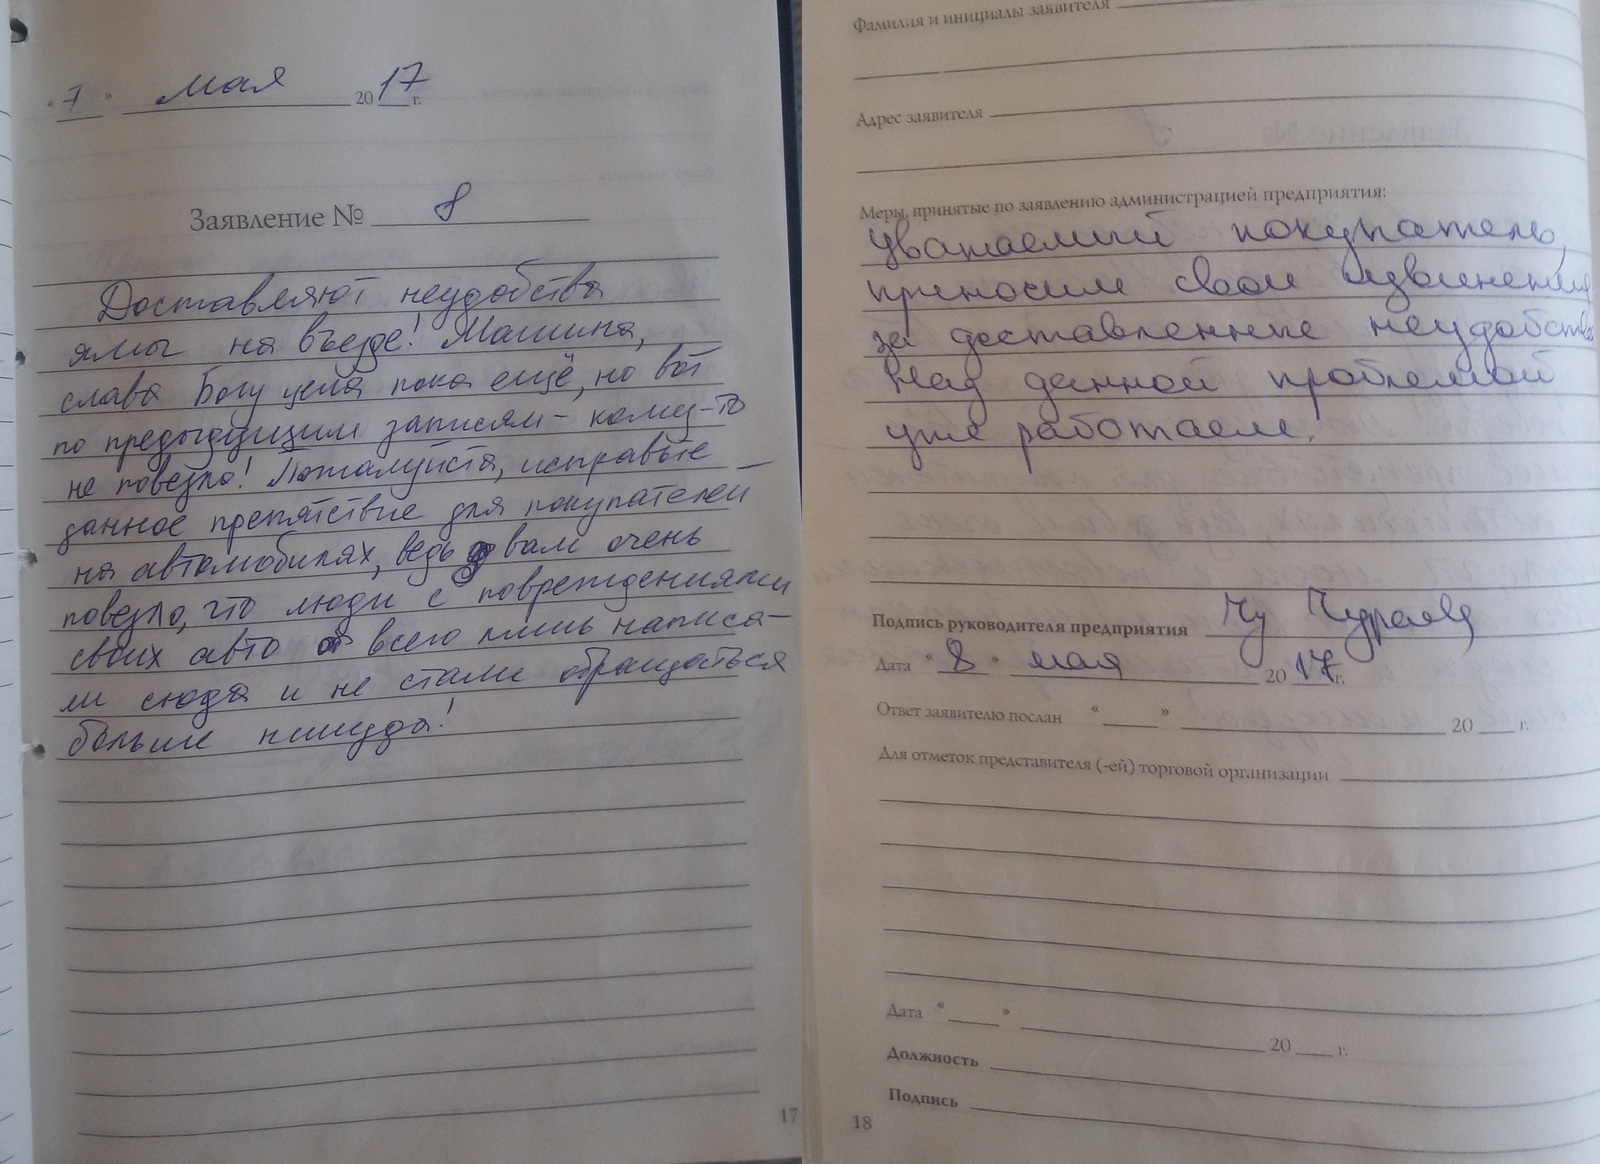 « 7 » мая 2017 г.
Заявление № 8
Доставляют неудобства
ямы на въезде! Машина,
слава Богу цела пока ещё, но вот
по предыдущим записям - кому-то
не повезло! Пожалуйста, исправьте
данное препятствие для покупателей
на автомобилях, ведь вам очень
повезло, что люди с повреждениями
своих авто всего лишь написа-
ли сюда и не стали обращаться
больше никуда!
17
Фамилия и инициалы заявителя
Адрес заявителя
Меры, принятые по заявлению администрацией предприятия:
Уважаемый покупатель,
приносим свои извинения
за доставленные неудобства
Над данной проблемой
уже работаем.
Подпись руководителя предприятия
Дата « 8 » мая 2017 г.
Ответ заявителю послан « » 20 г.
Для отметок представителя (-ей) торговой организации
Дата « » 20 г.
Должность
Подпись
18